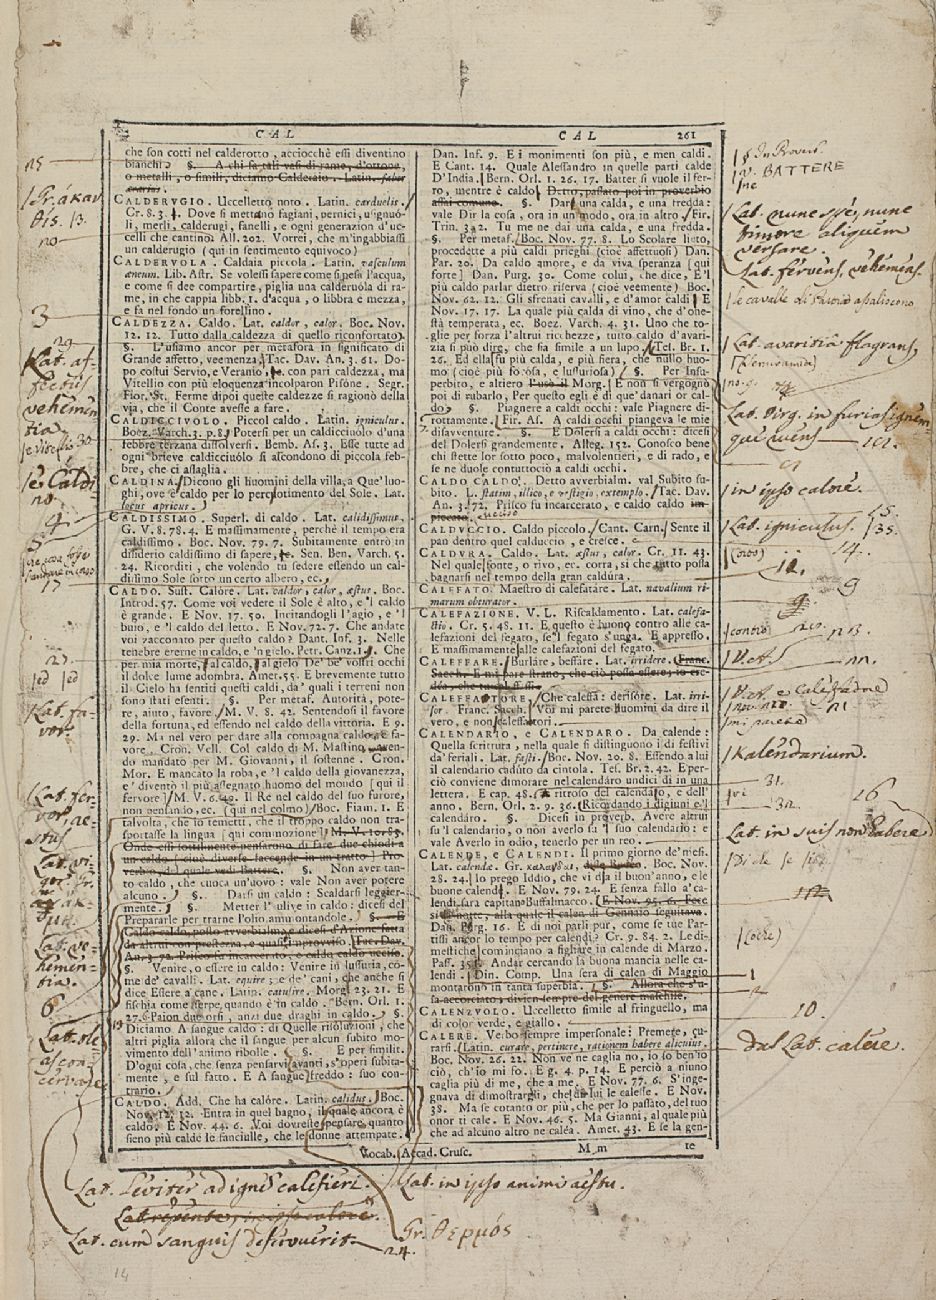 CAL
CAL 261
che son cotti nel calderotto, acciocchè essi diventino
bianchi? §. A chi fa tali vasi di rame, d'ottone,
o metalli, o simili, diciamo Calderaio. Latin. faber
ærarius.
CALDERUGIO. Uccelletto noto. Latin. carduelis.
Cr. 8. 3. 4. Dove si mettano fagiani, pernici, usignuo-
li, merli, calderugi, fanelli, e ogni generazion d'uc-
celli che cantino. All. 202. Vorrei, che m'ingabbiassi
un calderugio (qui in sentimento equivoco)
CALDERVOLA. Caldaia piccola. Latin. vasculum
æneum. Lib. Astr. Se volessi sapere come si pesi l'acqua,
e come si dee compartire, piglia una calderuóla di ra-
me, in che cappia libb. 1. d'acqua, o libbra e mezzo,
e fa nel fondo un forellino.
CALDEZZA. Caldo. Lat. caldor, calor. Boc. Nov.
12. 12. Tutto dalla caldezza di quello riconfortato
§. L'usiamo ancor per metafora in significato di
Grande affetto, veemenza. Tac. Dav. An. 3. 61. Do-
po costui Servio, e Veranio, e con pari caldezza, ma
Vitellio con più eloquenza incolparon Pisóne. Segr.
Fior. St. Ferme dipoi queste caldezze si ragionò della
via, che il Conte avesse a fare.
CALDICCIVOLO. Piccol caldo. Latin. igniculus.
Boez. Varch. 3. p. 8. Potersi per un caldicciuólo d'una
febbre terzana dissolversi. Bemb. As. 3. Esse tutte ad
ogni brieve caldicciuólo si ascondono di piccola feb-
bre, che ci assaglia.
CALDINA. Dicono gli huomini della villa, a Que' luo-
ghi, ove è caldo per lo percotimento del Sole. Lat.
locus apricus.
CALDISSIMO. Superl. di caldo. Lat. calidissimus.
G. V. 8. 78. 4. E massimamente, perchè il tempo era
caldissimo. Boc. Nov. 79. 7. Subitamente entrò in
disiderio caldissimo di sapere, Sen. Ben. Varch. 5.
24. Ricorditi, che volendo tu sedere essendo un cal-
dissimo Sole sotto un certo albero, ec.
CALDO. Sust. Calóre. Lat. caldor, calor, æstus. Boc.
Introd. 57. Come voi vedere il Sole è alto, e 'l caldo
è grande. E Nov. 17. 50. Incitandogli l'agio, e 'l
buio, e 'l caldo del letto. E Nov. 72. 7. Che andate
voi zacconato per questo caldo? Dant. Inf. 3. Nelle
tenebre eterne in caldo, e 'n gielo. Petr. Canz. 1. Che
per mia morte, al caldo, al gielo De' be' vostri occhi
il dolce lume adombra. Amet. 55. E brevemente tutto
il Cielo ha sentiti questi caldi, da' quali i terreni non
sono stati esenti. §. Per metaf. Autorità, pote-
re, aiuto, favore. M. V. 8. 42. Sentendosi il favore
della fortuna, ed essendo nel caldo della vittoria. E 9.
29. Ma nel vero per dare alla compagna caldo, e fa-
vore. Cron. Vell. Col caldo di M. Mastino, aven-
do mandato per M. Giovanni, il sostenne. Cron.
Mor. E mancato la roba, e 'l caldo della giovanezza,
e' diventò il più assegnato huomo del mondo (qui il
fervore) M. V. 6. 49. Il Re nel caldo del suo furore,
non pensando, ec. (qui nel colmo) Boc. Fiam. 1. E
talvolta, che io temetti, che il troppo caldo non tra-
sportasse la lingua (qui commozione)
Onde essi sottilmente pensarono di fare due chiodi a
un caldo (cioè diverse faccende in un tratto) Pro-
verbio, del quale vedi Battere. §. Non aver tan-
to caldo, che cuoca un'uovo: vale Non aver potere
alcuno. §. Darsi un caldo: Scaldarsi leggier-
mente. §. Metter l'ulive in caldo: dicesi del
Prepararle per trarne l'olio ammontandole. §. E
Caldo caldo, posto avverbialm. e dicesi d'Azione fatta
da altrui con prestezza, e quasi improvviso. Tac. Dav.
An. 3. 72. Prisco fu incarcerato, e caldo caldo ucciso.
§. Venire, o essere in caldo: Venire in lussuria, co-
me de' cavalli. Lat. equire; e de' cani, che anche si
dice Essere a cane. Latin. catulire. Morg. 23. 21. E
fischia come serpe, quando è in caldo. Bern. Orl. 1.
27. 6. Paion due orsi, anzi due draghi in caldo. §.
Diciamo A sangue caldo: di Quelle risoluzioni, che
altri piglia allora che il sangue per alcun subito mo-
vimento dell'animo ribolle. §. E per similit.
D'ogni cosa, che senza pensarvi avanti, s'operi subita-
mente, e sul fatto. E A sangue freddo: suo con-
trario.
CALDO. Add. Che ha calóre. Latin. calidus. Boc.
Nov. 12. 12. Entra in quel bagno, il quale ancora è
caldo. E Nov. 44. 6. Voi dovreste pensare, quanto
sieno più calde le fanciulle, che le donne attempate.
Dan. Inf. 9. E i monimenti son più, e men caldi.
E Cant. 14. Quale Alessandro in quelle parti calde
D'India. Bern. Orl. 1. 26. 17. Batter si vuole il fer-
ro, mentre è caldo. Detto, passato poi in proverbio
assai comune. §. Dar una calda, e una fredda:
vale Dir la cosa, ora in un modo, ora in altro. Fir.
Trin. 3. 2. Tu me ne dai una calda, e una fredda.
§. Per metaf. Boc. Nov. 77. 8. Lo Scolare lieto,
procedette a più caldi prieghi (cioè affettuosi) Dan.
Par. 20. Da caldo amore, e da viva speranza (qui
forte) Dan. Purg. 30. Come colui, che dice, E 'l
più caldo parlar dietro riserva (cioè veemente) Boc.
Nov. 62. 12. Gli sfrenati cavalli, e d'amor caldi E
Nov. 17. 17. La quale più calda di vino, che d'one-
stà temperata, ec. Boez. Varch. 4. 31. Uno che to-
glie per forza l'altrui ricchezze, tutto caldo d'avari-
zia si può dire, che sia simile a un lupo. Tes. Br. 1.
26. Ed ella fu più calda, e più fiera, che nullo huo-
mo (cioè più focosa, e lussuriosa) §. Per Insu-
perbito, e altiero l'usò il Morg. E non si vergognò
poi di rubarlo, Per questo egli è di que' danari or cal-
do. §. Piagnere a caldi occhi: vale Piagner di-
rottamente. Fir. As. A caldi occhi piangeva le mie
disavventure. §. E Dolersi a caldi occhi: dicesi
del Dolersi grandemente. Alleg. 152. Conosco bene
chi stette lor sotto poco, malvolentieri, e di rado, e
se ne duole contuttociò a caldi occhi.
CALDO CALDO. Detto avverbialm. val Subito su-
bito. L. statim, illico, e vestigio, extemplo. Tac. Dav.
An. 3. 72. Prisco fu incarcerato, e caldo caldo im-
piccato. ucciso
CALDUCCIO. Caldo piccolo. Cant. Carn. Sente il
pan dentro quel calduccio, e cresce.
CALDVRA. Caldo. Lat. æstus, calor. Cr. 11. 43.
Nel quale fonte, o rivo, ec. corra, sì che tutto possa
bagnarsi nel tempo della gran caldúra.
CALEFATO. Maestro di calefatare. Lat. navalium ri-
marum obturator.
CALEFAZIONE. V. L. Riscaldamento. Lat. calefa-
ctio. Cr. 5. 48. 11. E questo è buono contro alle ca-
lefazioni del fegato, se 'l fegato s'unga. E appresso.
E massimamente alle calefazioni del fegato.
CALEFFARE. Burláre, beffáre. Lat. irridere. Franc.
Sacch.
CALEFFATORE. Che caleffa: derisóre. Lat. irri-
sor. Franc. Sacch. Voi mi parete huomini da dire il
vero, e non caleffatori.
CALENDARIO, e CALENDARO. Da calende:
Quella scrittura, nella quale si distinguono i dì festivi
da' feriali. Lat. fasti. Boc. Nov. 20. 8. Essendo a lui
il calendario caduto da cintola. Tes. Br. 2. 42. E per-
ciò conviene dimorare nel calendario undici dì in una
lettera. E cap. 48. A ritroso del calendaro, e dell'
anno. Bern. Orl. 2. 9. 36. Ricordando i digiuni e 'l
calendáro. §. Dicesi in proverb. Avere altrui
su 'l calendario, o non averlo su 'l suo calendario: e
vale Averlo in odio, tenerlo per un reo.
CALENDE, e CALENDI. Il primo giorno de' mesi.
Lat. calendæ. Boc. Nov.
28. 24. Io prego Iddio, che vi dia il buon'anno, e le
buone calendi. E Nov. 79. 24. E senza fallo a' ca-
lendi sarà capitano Buffalmacco. E Nov. 95. 6. Fece
sì la notte, alla quale il calen di Gennaio seguitava.
Dan. Purg. 16. E di noi parli pur, come se tue Par-
tissi ancor lo tempo per calendi? Cr. 9. 84. 2. Le di-
mestiche cominciano a figliare in calende di Marzo.
Pass. 358. Andar cercando la buona mancia nelle ca-
lendi. Din. Comp. Una sera di calen di Maggio
montarono in tanta superbia. §. Allora che s'u-
sa accorciato, divien sempre del genere maschile.
CALENZVOLO. Uccelletto simile al fringuello, ma
di color verde, e giallo.
CALERE. Verbo sempre impersonale: Premere, cu-
rarsi. Latin. curare, pertinere, rationem habere alicuius.
Boc. Nov. 26. 22. Non ve ne caglia no, io so ben'io
ciò, ch'io mi fo. E g. 4. p. 14. E perciò a niuno
caglia più di me, che a me. E Nov. 77. 6. S'inge-
gnava di dimostrargli, che di lui le calesse. E Nov.
38. Ma se cotanto or più, che per lo passato, del tuo
onor ti cale. E Nov. 46. 5. Ma Gianni, al quale più
che ad alcuno altro ne caléa. Amet. 43. E se la gen-
Vocab. Accad. Crusc. M m te
no
3
Lat. af-
fectus
vehemen
tia.
se Caldi
no.
4
5
27.
Lat. fa-
vor.
Lat. fer-
vor, æ-
stus
Lat. ve-
hemen-
tia.
6
§ In Prover.
v. BATTERE
Lat. nunc spe, nunc
timore aliquem
versare.
Lat. fervens, vehemens.
Lat. avaritia flagrans,
Lat. Virg. in furias ignem
que ruens
in ipso calore.
Lat. igniculus.
14.
9
Kalendarium.
31.
16
Lat. in suis non habere
1
10.
Dal Lat. calere.
Lat. Leviter ad ignes calefieri.
Lat. in ipso animi æstu.
Lat. repente, in ipso calore.
Gr. θερμός
Lat. cum sanguis deferbuerit.
24.
14